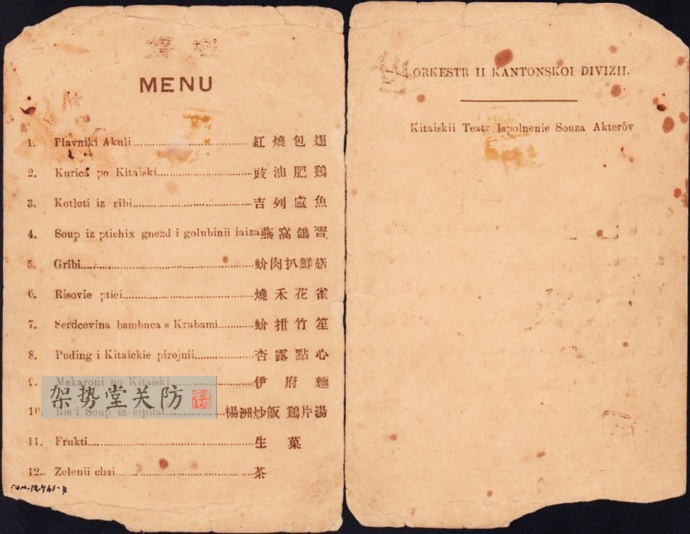 MENU
1. Plavniki Akuli 紅燒包翅
2. Kurica po Kitaiski 豉油肥鷄
3. Kotleti iz ribi 吉列鱸魚
4. Soup iz ptichix gnezd i golubinii iaiza 燕窩鴿
5. Gribi 蚧肉扒鮮菇
6. Risovie ptici 燒禾花雀
7. Serdcevina bambuca s Krabami 蚧扒竹笙
8. Puding i Kitaickie pirojnii 杏露點心
9. Makaroni po Kitaiski 伊府麵
10. Ris i Soup iz cipliat 楊洲炒飯 鷄片湯
11. Frukti 生菓
12. Zelenii chai 茶
架势堂关防
ORKESTR II KANTONSKOI DIVIZII.
Kitaiskii Teatr Ispolnenie Souza Akterov